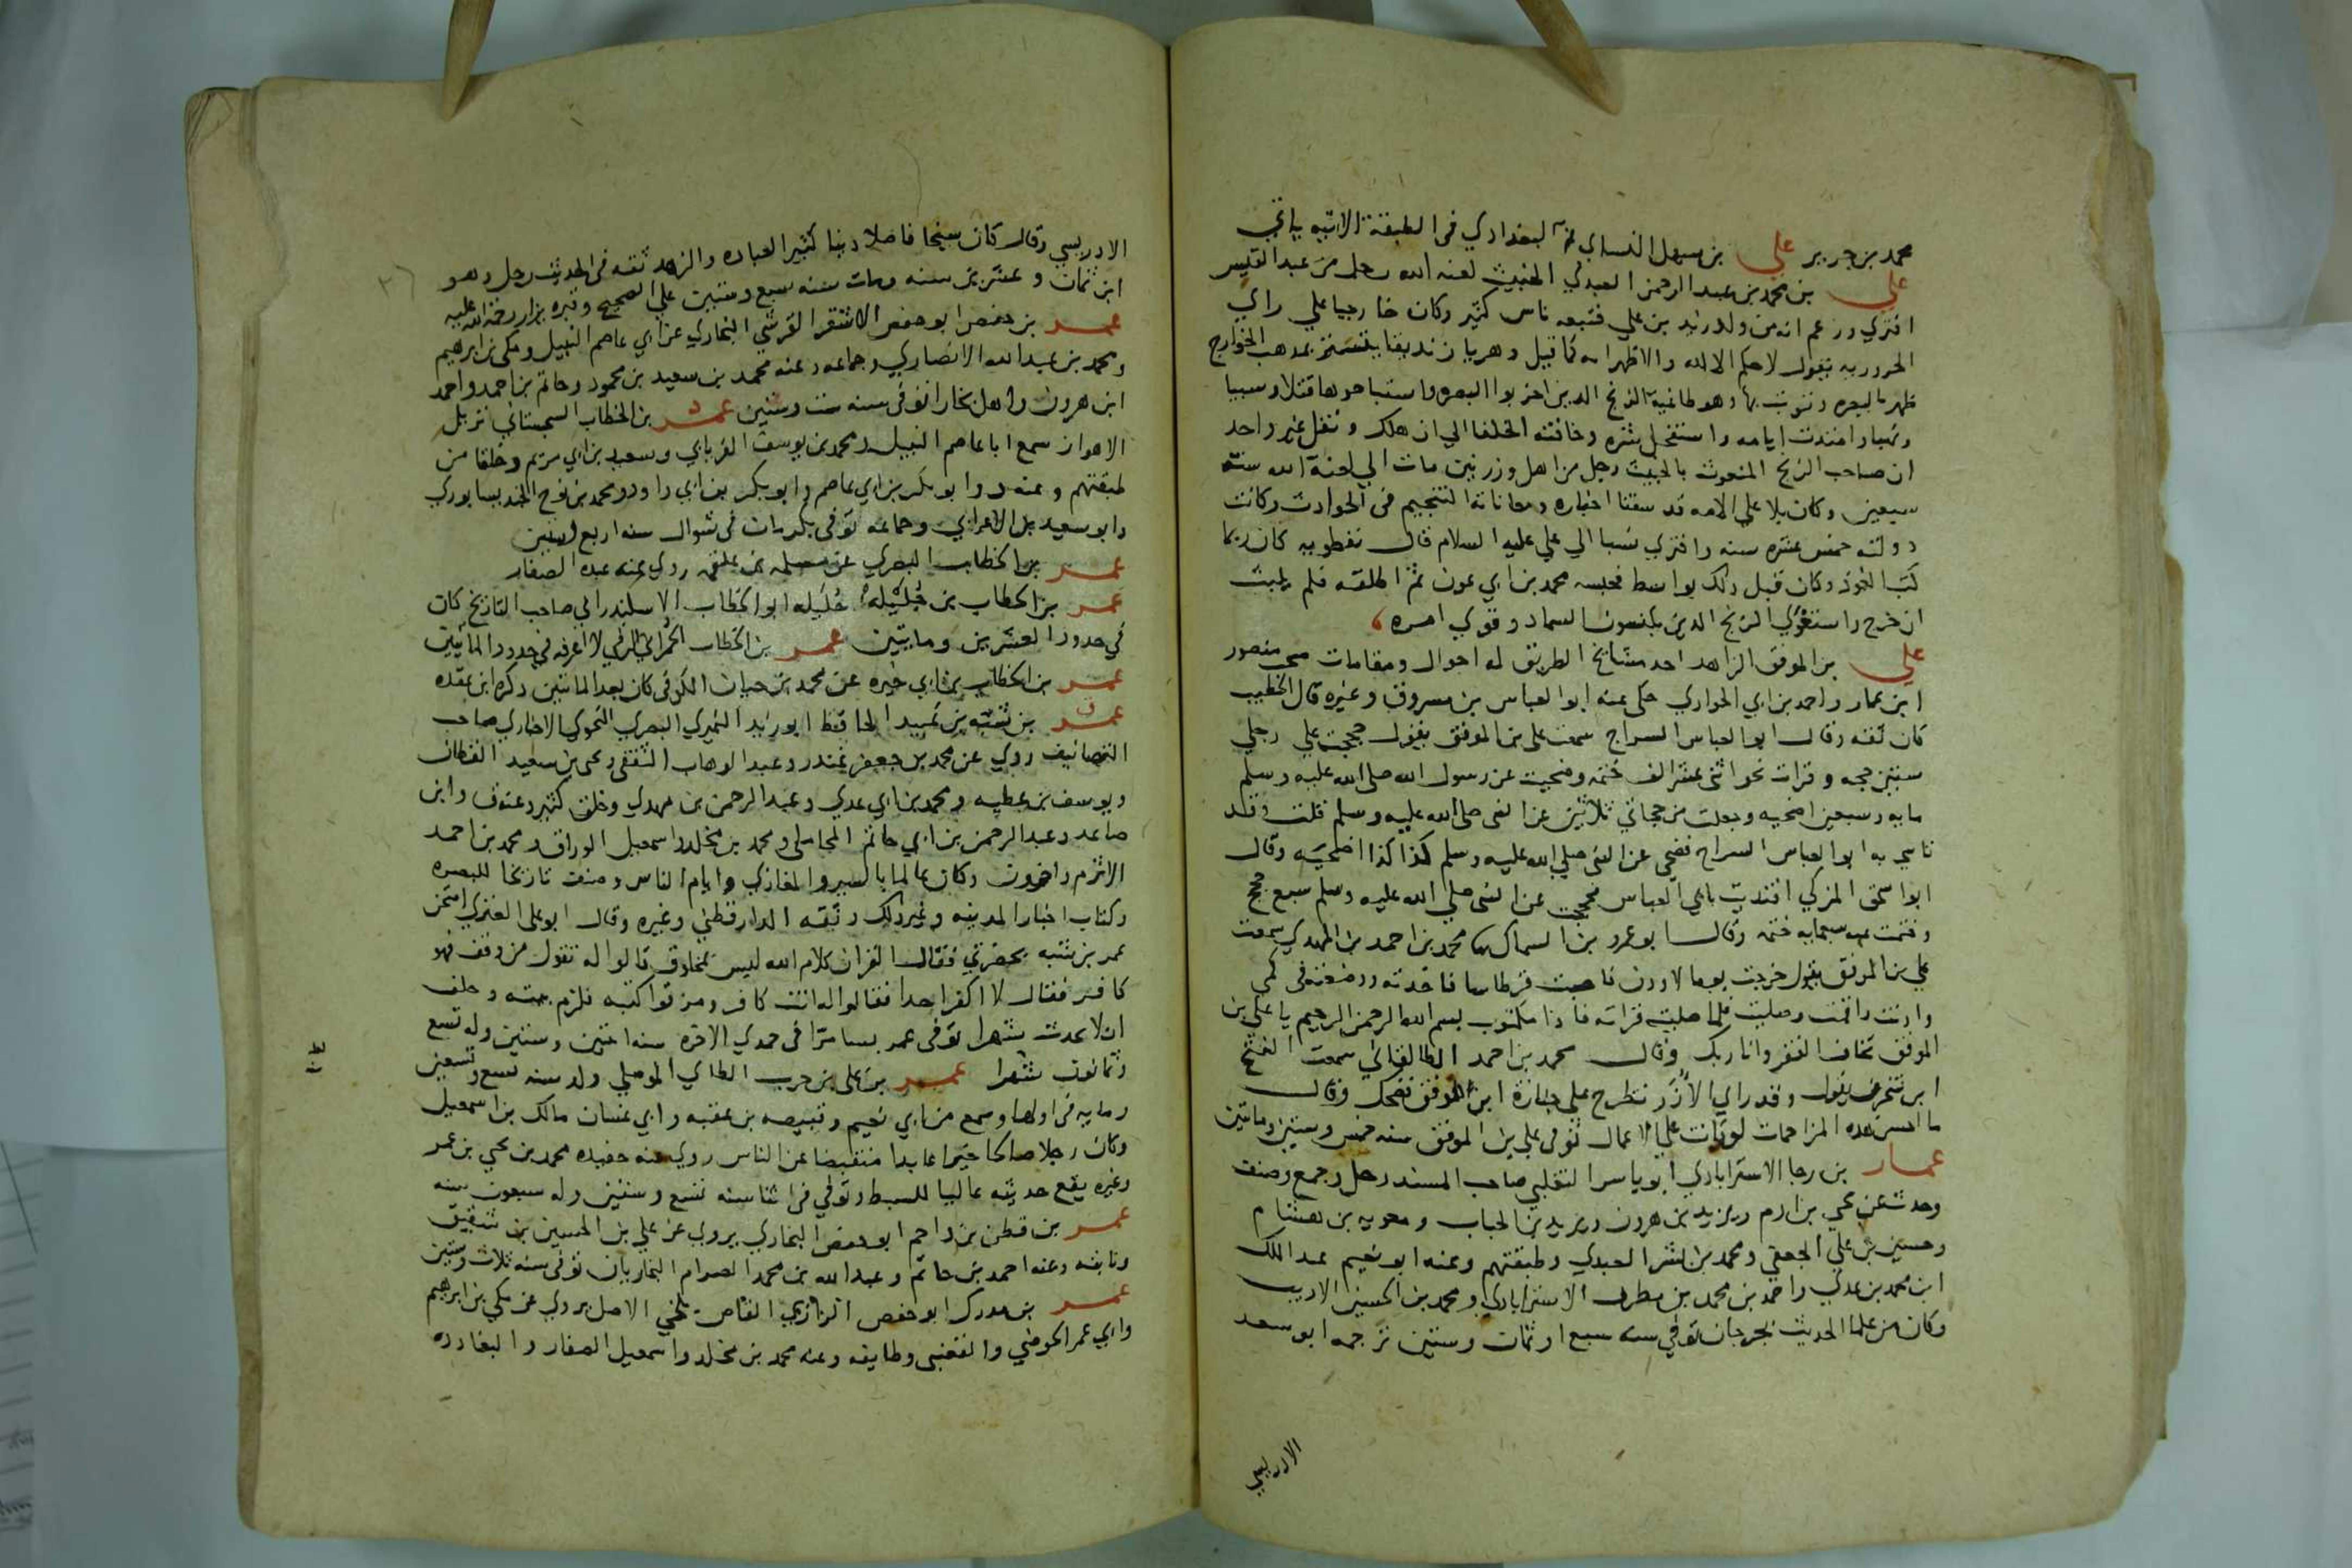 محمد بن جرير علي بن سهل النساي ثم البغدادي في الطبقة الاتيه ياتي
علي بن محمد بن عبد الرحمن العبدي الخبيث لعنه الله رجل من عبد القيس
افتري وزعم انه من ولد زيد بن علي فتبعه ناس كثير وكان خارجيا علي راي
الحروريه يقول لا حكم الا لله والاظهر انه كما قيل دهريا زنديقا يتستر بمذهب الخوارج
ظهر بالبصره وتوثب بها وهو طاغية الزنج الذين اخربوا البصره واستباحوها قتلا وسبيا
ونهبا وامتدت ايامه واستفحل شره وخافته الخلفا الي ان هلك ونقل غير واحد
ان صاحب الزنج المنعوت بالخبيث رجل من اهل ورزنين مات الي لعنة الله سنة
سبعين وكان بلا علي الامه قد سقنا اخباره ومعاناته التنجيم في الحوادث وكانت
دولته خمس عشره سنه وافتري نسبا الي علي عليه السلام قال نفطويه كان ربما
كتب العوذ وكان قبل ذلك بواسط فحبسه محمد بن ابي عون ثم اطلقه فلم يلبث
ان خرج واستغوي الزنج الذين يكنسون السماد وقوي امره
علي بن الموفق الزاهد احد مشايخ الطريق له احوال ومقامات صحب منصور
ابن عمار واحمد بن ابي الحواري حكى عنه ابو العباس بن مسروق وغيره قال الخطيب
كان ثقه وقال ابو العباس السراج سمعت علي بن الموفق يقول حججت علي رجلي
ستين حجه وقرات نحو اثني عشر الف ختمه وضحيت عن رسول الله صلى الله عليه وسلم
مايه وسبعين اضحيه وجعلت من حجاتي ثلاثين عن النبي صلى الله عليه وسلم قلت وقد
تاسي به ابو العباس السراج فضحي عن النبي صلى الله عليه وسلم كذا كذا اضحيه وقال
ابو اسحق المزكي اقتديت بابي العباس فحججت عن النبي صلى الله عليه وسلم سبع حجج
وختمت عنه سبعمايه ختمه وقال ابو عمرو بن السماك محمد بن احمد بن المهدي سمعت
علي بن الموفق يقول خرجت يوما لاوذن فاصبت قرطاسا فاخذته ووضعته في كمي
واذنت واقمت وصليت فلما صليت قراته فاذا مكتوب بسم الله الرحمن الرحيم يا علي بن
الموفق تخاف الفقر وانا ربك وقال محمد بن احمد الطالقاني سمعت الفتح
ابن شخرف يقول وقد راي الازر تطرح علي جنازة ابن الموفق فضحك وقال
ما احسن هذه المزاحمات لو كانت علي الاعمال توفي علي بن الموفق سنه خمس وستين ومايتين
عمار بن رجا الاستراباذي ابو ياسر التغلبي صاحب المسند رحل وجمع وصنف
وحدث عن يحي بن ادم ويزيد بن هرون وزيد بن الحباب ومعويه بن هشام
وحسين بن علي الجعفي ومحمد بن بشر العبدي وطبقتهم وعنه ابو نعيم عبد الملك
ابن محمد بن عدي واحمد بن محمد بن مطرف الاستراباذي ومحمد بن الحسين الاديب
وكان من علما الحديث بجرجان توفي سنه سبع او ثمان وستين ترجمه ابو سعد
الادريسي
الادريسي وقال كان شيخا فاضلا دينا كثير العباده والزهد ثقه في الحديث رحل وهو
ابن ثمان وعشرين سنه ومات سنه سبع وستين علي الصحيح وقبره يزار رحمة الله عليه
عمر بن حفص ابو حفص الاشقر القرشي البخاري عن ابي عاصم النبيل ومكي بن ابرهيم
ومحمد بن عبد الله الانصاري وجماعه وعنه محمد بن سعيد بن محمود وحاتم بن احمد واحمد
ابن هرون واهل بخارا توفي سنه ست وستين عمر بن الخطاب السجستاني نزيل
الاهواز سمع ابا عاصم النبيل ومحمد بن يوسف الفريابي وسعيد بن ابي مريم وخلقا من
طبقتهم وعنه د وابو بكر بن ابي عاصم وابو بكر بن ابي داود ومحمد بن نوح الجنديسابوري
وابو سعيد بن الاعرابي وجماعه توفي بكرمان في شوال سنه اربع وستين
عمر بن الخطاب البصري عن مسلمه بن علقمه روي عنه عبده الصفار
عمر بن الخطاب بن حليله ابو الخطاب الاسكندراني صاحب التاريخ كان
في حدود العشرين ومايتين عمر بن الخطاب الحراني الرقي لا اعرفه في حدود المايتين
عمر بن الخطاب بن ابي خيره عن محمد بن حيان الكوفي كان بعد المايتين ذكره ابن عقده
عمر بن شبه بن عبيد الحافظ ابو زيد النميري البصري النحوي الاخباري صاحب
التصانيف روي عن محمد بن جعفر غندر وعبد الوهاب الثقفي ويحي بن سعيد القطان
ويوسف بن عطيه ومحمد بن ابي عدي وعبد الرحمن بن مهدي وخلق كثير وعنه ق وابن
صاعد وعبد الرحمن بن ابي حاتم المحاملي ومحمد بن مخلد واسمعيل الوراق ومحمد بن احمد
الاثرم واخرون وكان عالما بالسير والمغازي وايام الناس وصنف تاريخا للبصره
وكتاب اخبار المدينه وغير ذلك وثقه الدارقطني وغيره وقال ابو علي العنزي امتحن
عمر بن شبه بحضرتي فقال القران كلام الله ليس بمخلوق قالوا له تقول من وقف فهو
كافر فقال لا اكفر احدا فقالوا له انت كافر ومزقوا كتبه فلزم بيته وحلف
ان لا يحدث شهرا توفي عمر بسامرا في جمدي الاخره سنه اثنتين وستين وله تسع
وثمانون شهرا عمر بن علي بن حرب الطاي الموصلي ولد سنه تسع وتسعين
ومايه في اولها وسمع من ابي نعيم وقبيصه بن عقبه وابي غسان مالك بن اسمعيل
وكان رجلا صالحا خيرا عابدا منقبضا عن الناس روي عنه حفيده محمد بن يحي بن عمر
وغيره يقع حديثه عاليا للسبط وتوفي في اثنا سنه تسع وستين وله سبعون سنه
عمر بن قطن بن زاحم ابو حفص البخاري يروي عن علي بن الحسين بن شقيق
وتابعه وعنه احمد بن حاتم وعبد الله بن محمد الصرام البخاريان توفي سنه ثلاث وستين
عمر بن مدرك ابو حفص الرازي القاص بلخي الاصل يروي عن مكي بن ابرهيم
وابي عمر الحوضي والقعنبي وطايفه وعنه محمد بن مخلد واسمعيل الصفار والبغاددة